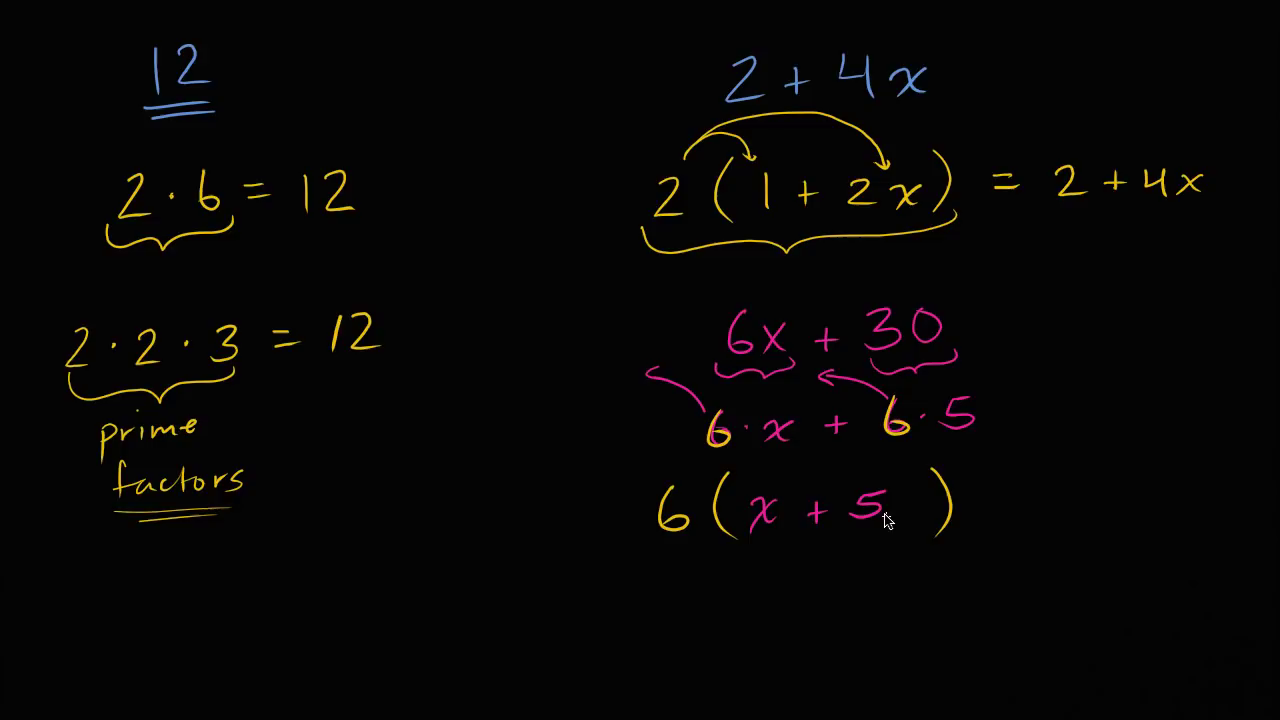 12
2 · 6 = 12
2 · 2 · 3 = 12
prime
factors
2 + 4x
2 ( 1 + 2x ) = 2 + 4x
6x + 30
6 · x + 6 · 5
6 ( x + 5 )